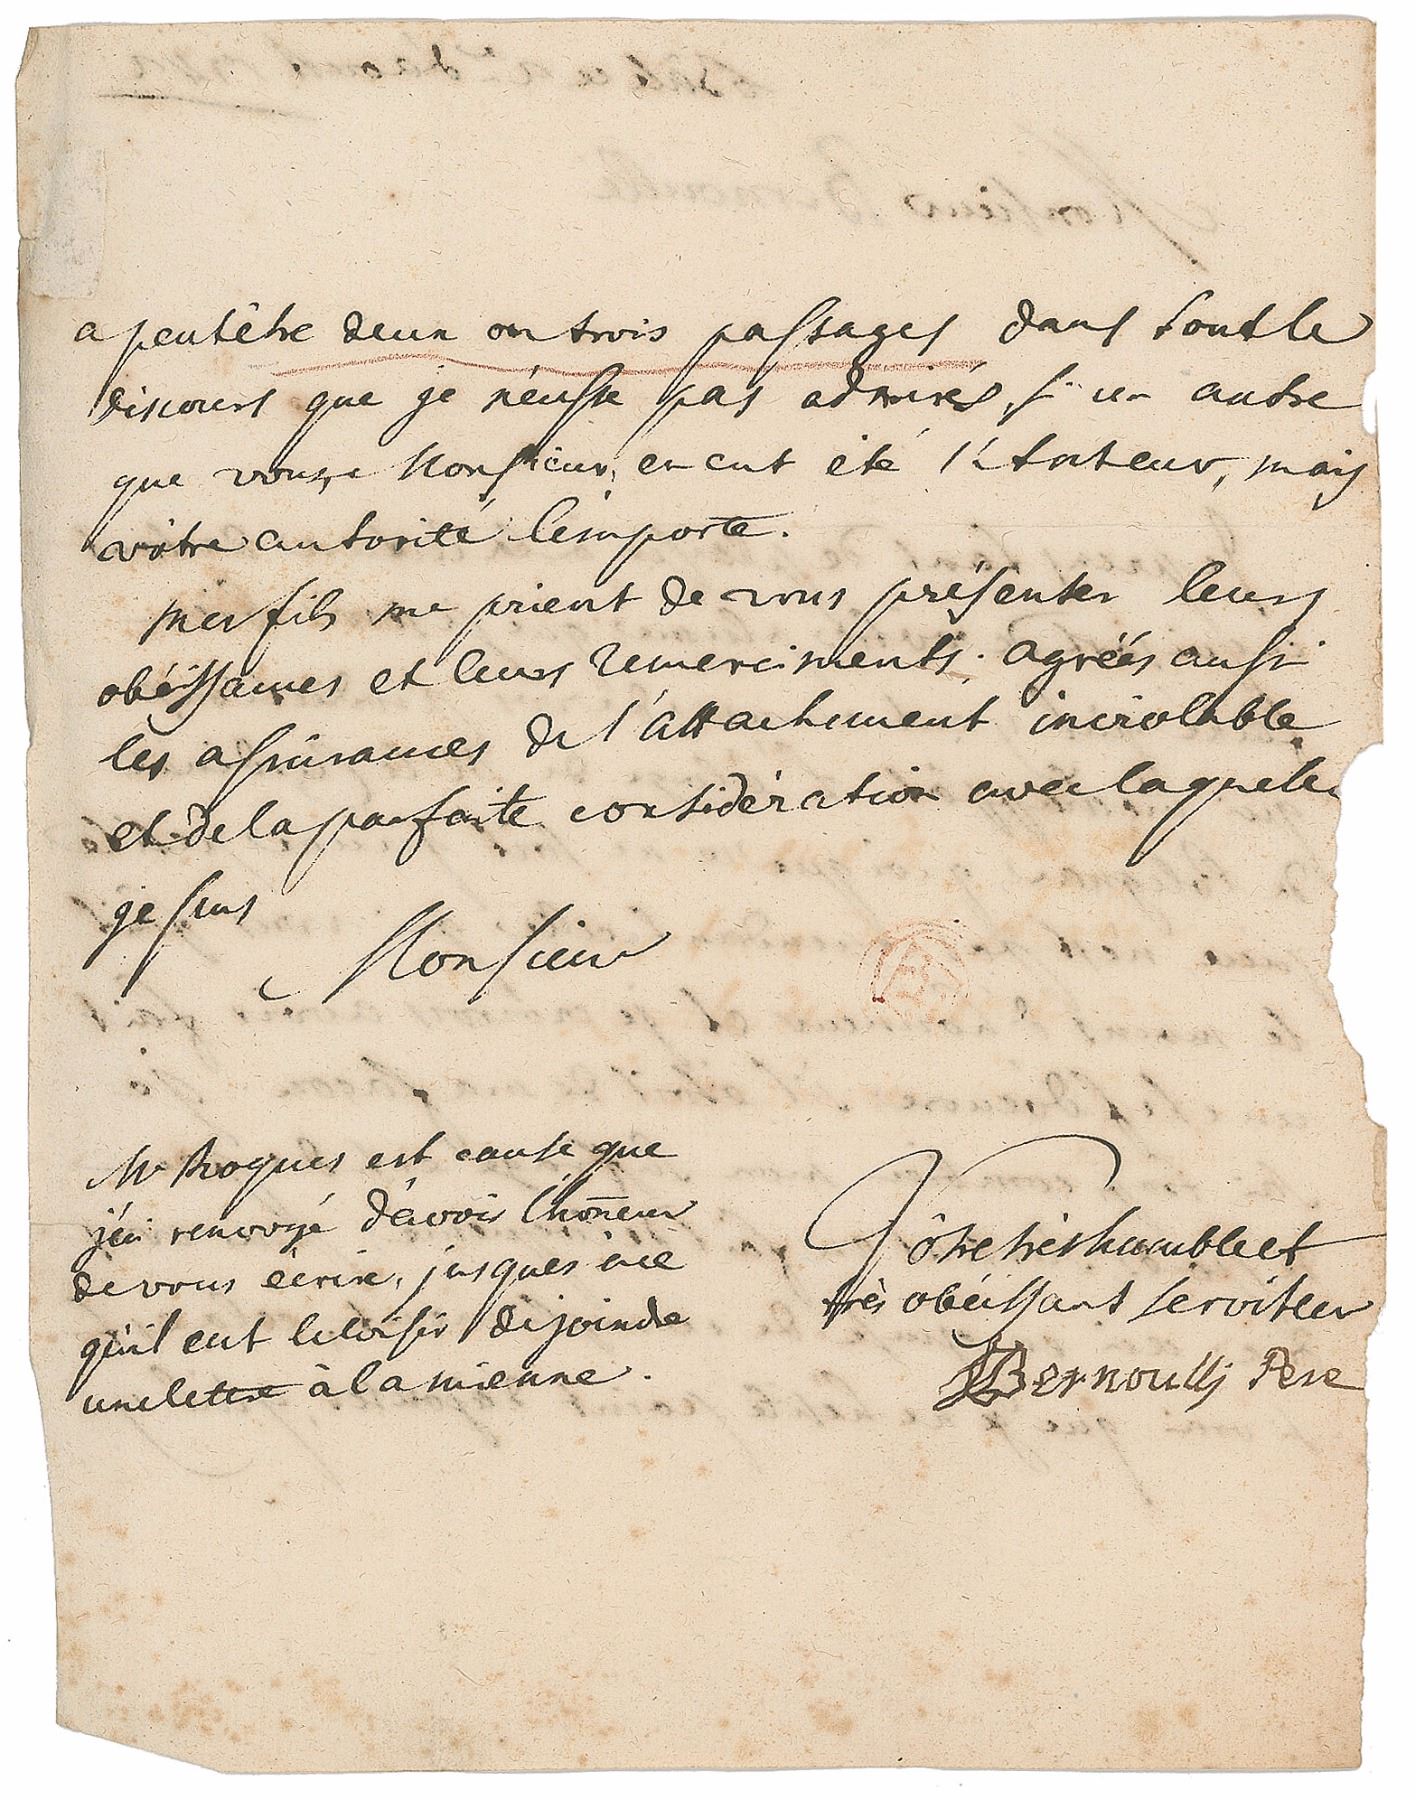 a peutêtre deux ou trois passages dans tout le
discours que je n'eusse pas admirés, si un autre
que vous, Monsieur, en eut été l'Auteur, mais
vôtre autorité l'emporte.
Mes fils me prient de vous présenter leurs
obéissances et leurs remerciments. agréés aussi
les assurances de l'attachement inviolable
et de la parfaite considération avec laquelle
je suis
Monsieur
Mr Roques est cause que
j'ai renvoyé d'avoir l'hōneur
de vous écrire, jusques à ce
qu'il eut le loisir de joindre
une lettre à la mienne.
Vôtre très humble et
très obéissant serviteur
JBernoulli Pere